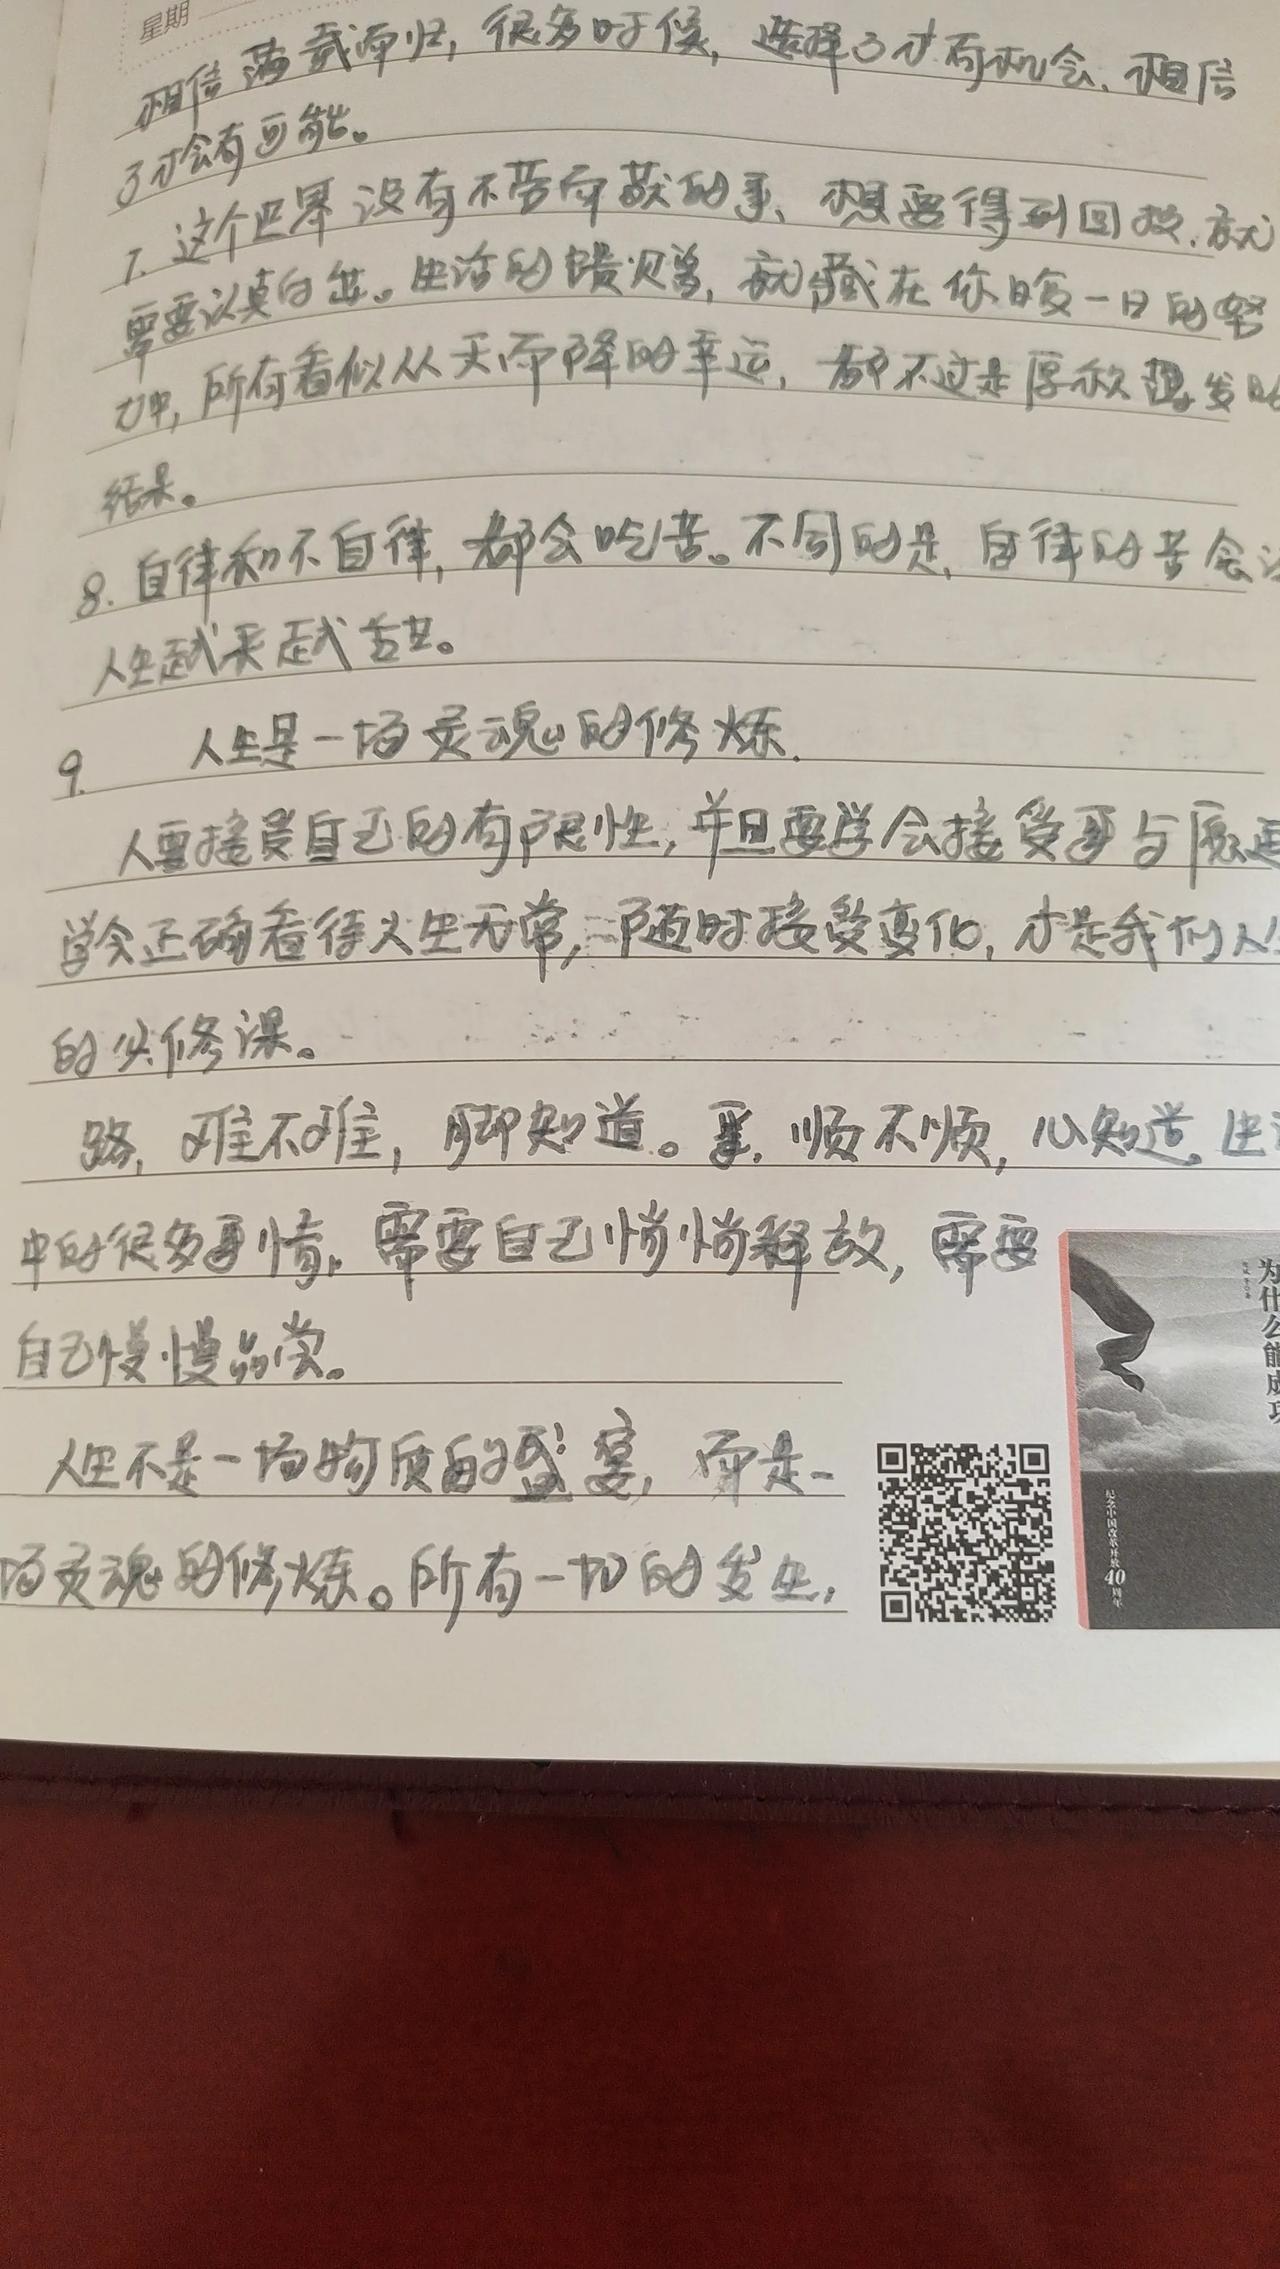 星期
相信满载而归,很多时候,选择了才有机会,相信
了才会有可能。
7. 这个世界没有不劳而获的事,想要得到回报,就
需要认真付出。生活的馈赠,就藏在你日复一日的努
力中,所有看似从天而降的幸运,都不过是厚积薄发的
结果。
8. 自律和不自律,都会吃苦。不同的是,自律的苦会
人生越来越甜。
9. 人生是一场灵魂的修炼.
人要接受自己的有限性,并且要学会接受事与愿
学会正确看待人生无常,随时接受变化,才是我们人生
的必修课。
路,难不难,脚知道。事,顺不顺,心知道,生
中的很多事情,需要自己悄悄释放,需要
自己慢慢品尝。
人生不是一场物质的盛宴,而是一
场灵魂的修炼。所有一切的发生,
为什么能成功
纪念中国改革开放40周年